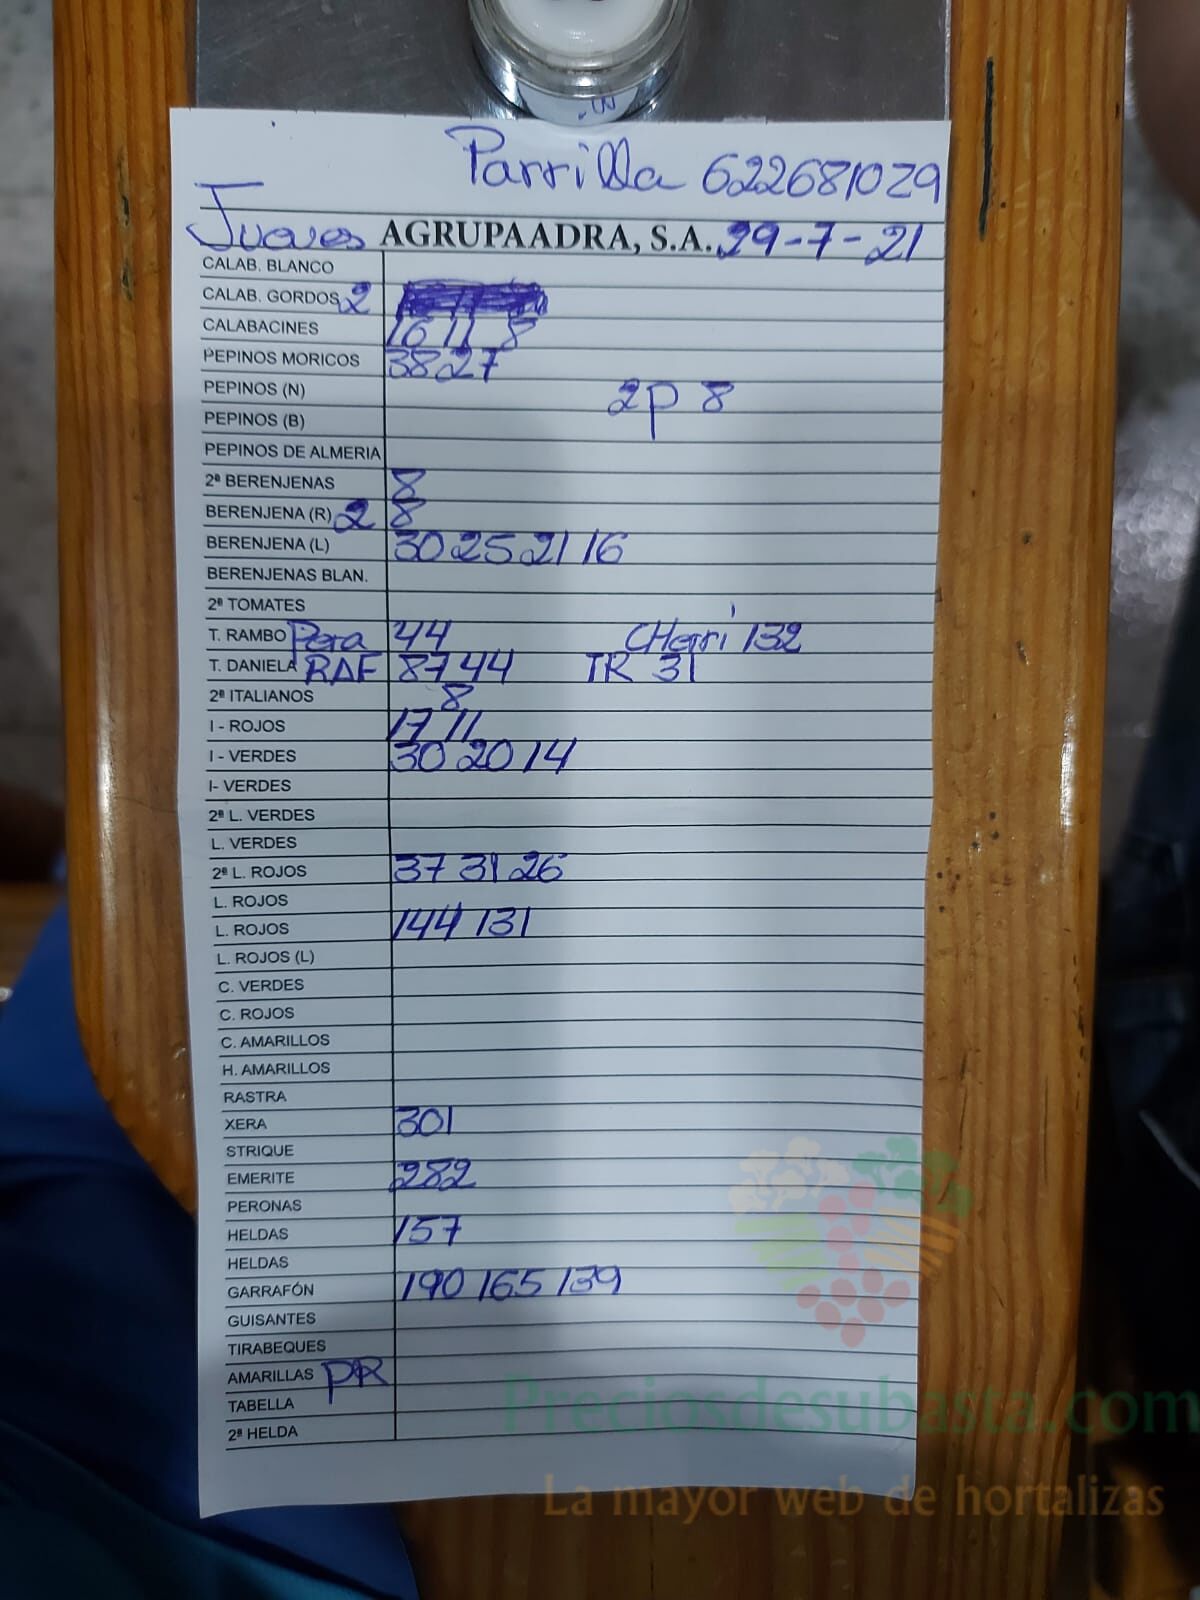 Parrilla 622681029
Jueves AGRUPAADRA, S.A. 29-7-21
CALAB. BLANCO
CALAB. GORDOS 2
CALABACINES 16 11 8
PEPINOS MORICOS 38 27
PEPINOS (N) 2p 8
PEPINOS (B)
PEPINOS DE ALMERIA
2ª BERENJENAS 8
BERENJENA (R) 2 8
BERENJENA (L) 30 25 21 16
BERENJENAS BLAN.
2ª TOMATES
T. RAMBO Pera 44 CHerri 132
T. DANIELA RAF 87 44 TR 31
2ª ITALIANOS 8
I - ROJOS 17 11
I - VERDES 30 20 14
I- VERDES
2ª L. VERDES
L. VERDES
2ª L. ROJOS 37 31 26
L. ROJOS
L. ROJOS 144 131
L. ROJOS (L)
C. VERDES
C. ROJOS
C. AMARILLOS
H. AMARILLOS
RASTRA
XERA 301
STRIQUE
EMERITE 282
PERONAS
HELDAS 157
HELDAS
GARRAFÓN 190 165 139
GUISANTES
TIRABEQUES
AMARILLAS PR
TABELLA
2ª HELDA
Preciosdesubasta.com
La mayor web de hortalizas